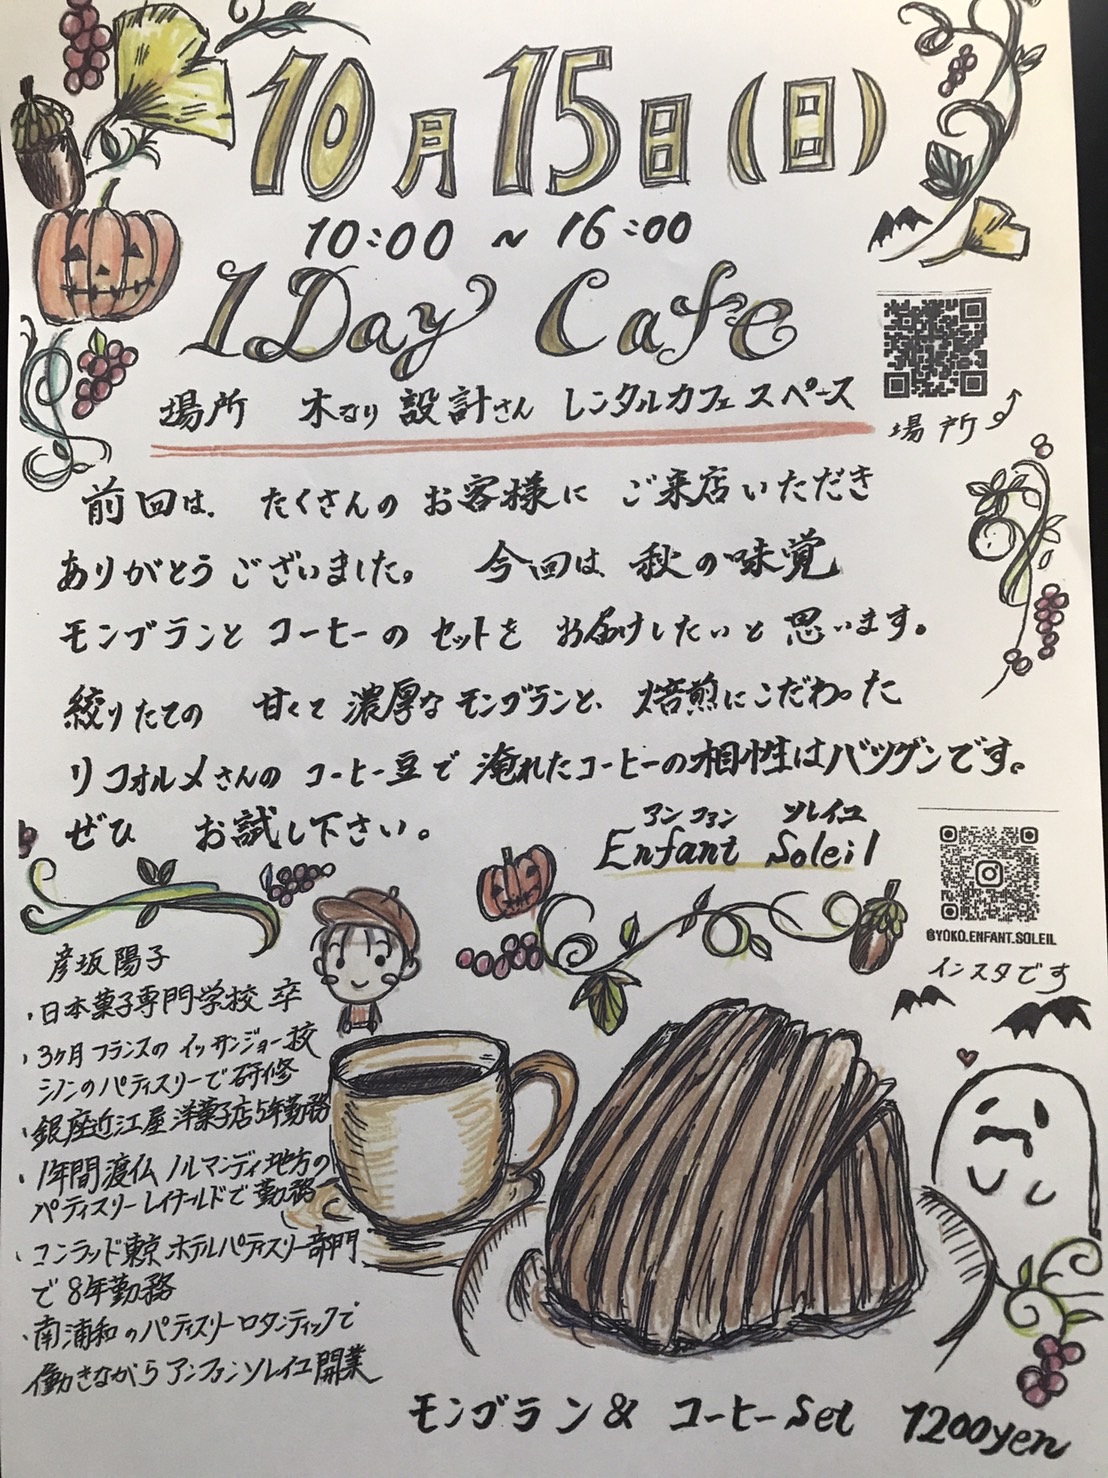 10月15日(日)
10:00 ~ 16:00
1Day Cafe
場所 木なり設計さん レンタルカフェスペース
場所
前回は、たくさんのお客様に ご来店いただき
ありがとうございました。 今回は 秋の味覚
モンブランと コーヒーの セットを お届けしたいと思います。
絞りたての 甘くて濃厚なモンブランと、焙煎にこだわった
リコオルメさんの コーヒー豆で 淹れたコーヒーの相性はバツグンです。
ぜひ お試し下さい。
アンファン ソレイユ
Enfant Soleil
@YOKO.ENFANT.SOLEIL
インスタです
彦坂陽子
・日本菓子専門学校 卒
・3ヶ月フランスの イッサンジョー校
シノンのパティスリーで研修
・銀座近江屋洋菓子店5年勤務
・1年間渡仏 ノルマンディ地方の
パティスリーレイナールドで勤務
・コンラッド東京ホテルパティスリー部門
で8年勤務
・南浦和のパティスリーロタンティックで
働きながらアンファンソレイユ開業
モンブラン& コーヒーSet 1200yen